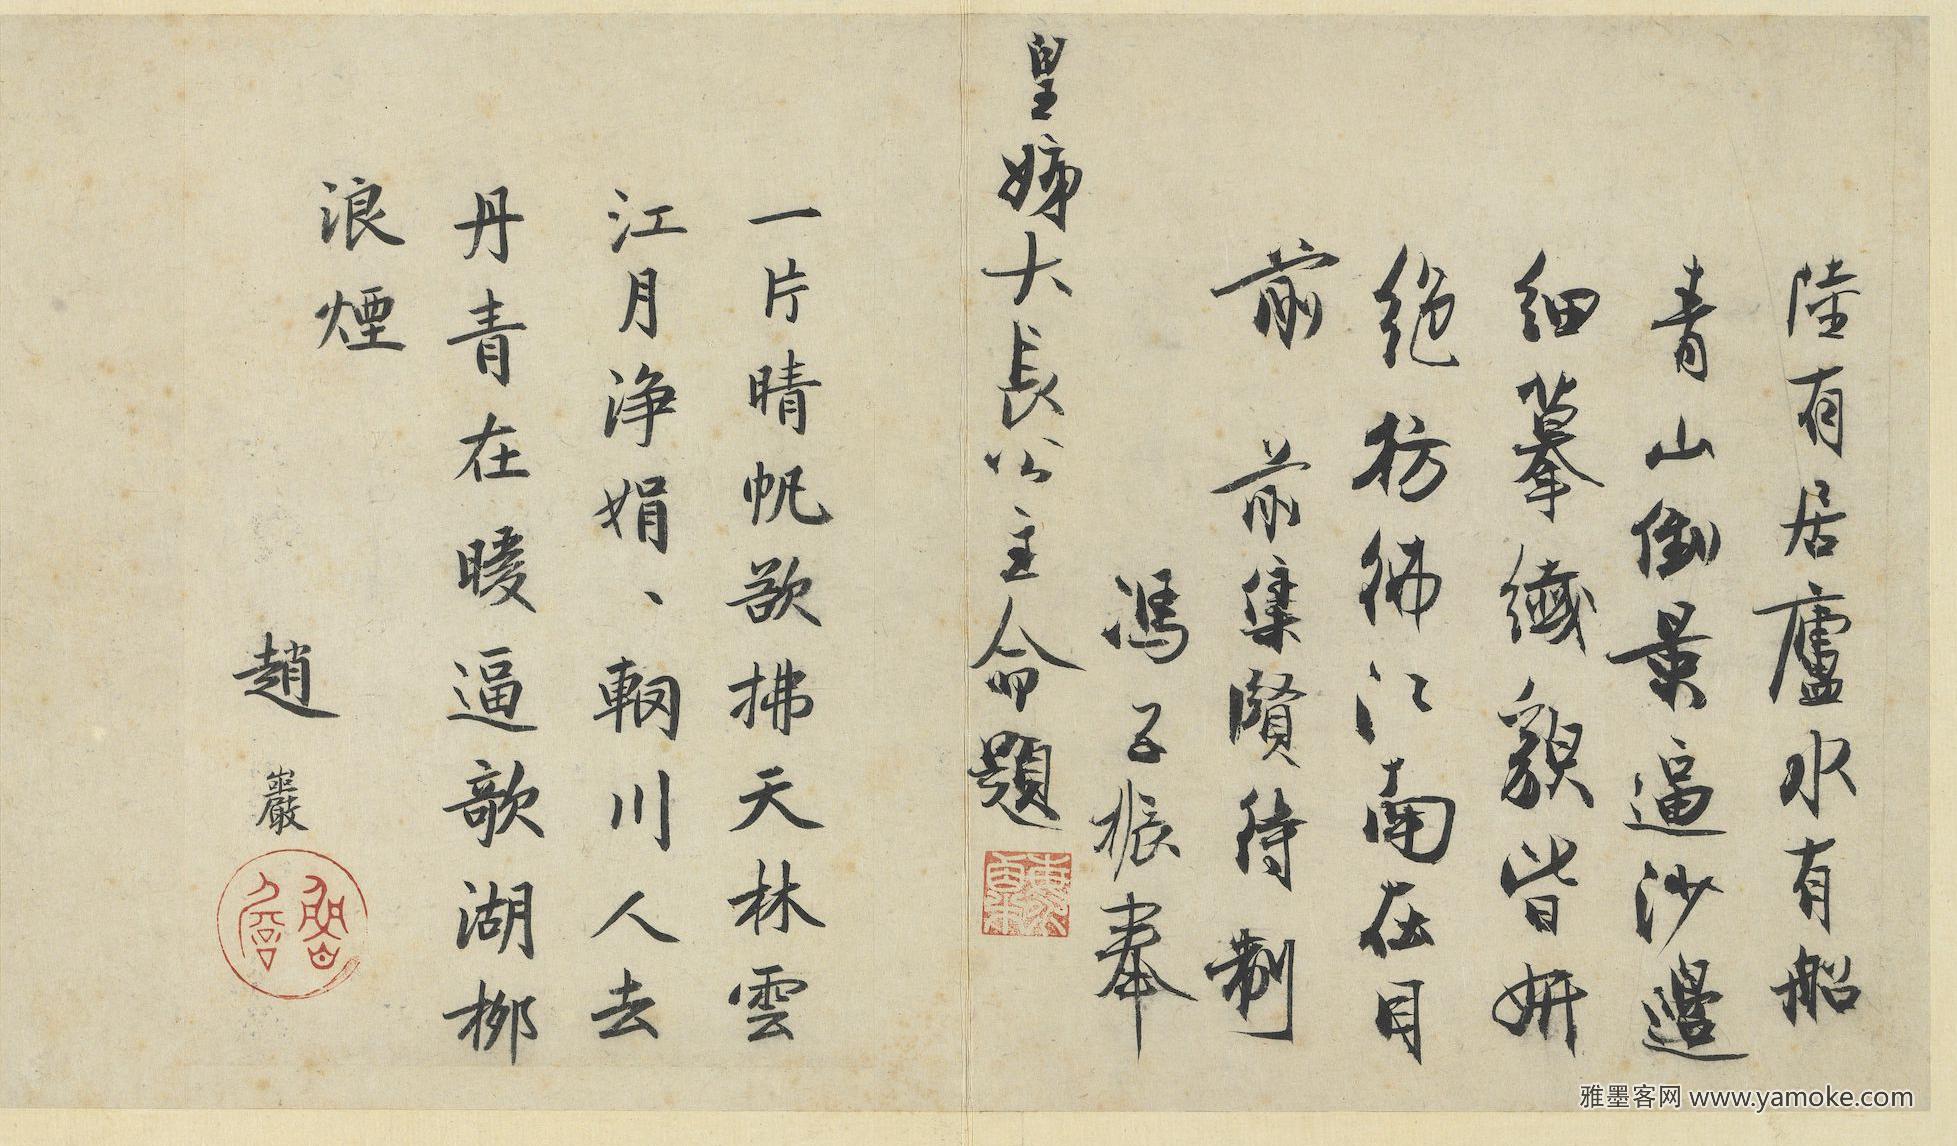 陸有居廬水有船
青山倒景逼沙邊
細摹纎貌皆妍
絕彷彿江南在目
前 前集賢待制
馮子振奉
皇姊大長公主命題
一片晴帆欲拂天林雲
江月浄娟、輞川人去
丹青在暖逼歌湖柳
浪煙
趙
巖
雅墨客网 www.yamoke.com